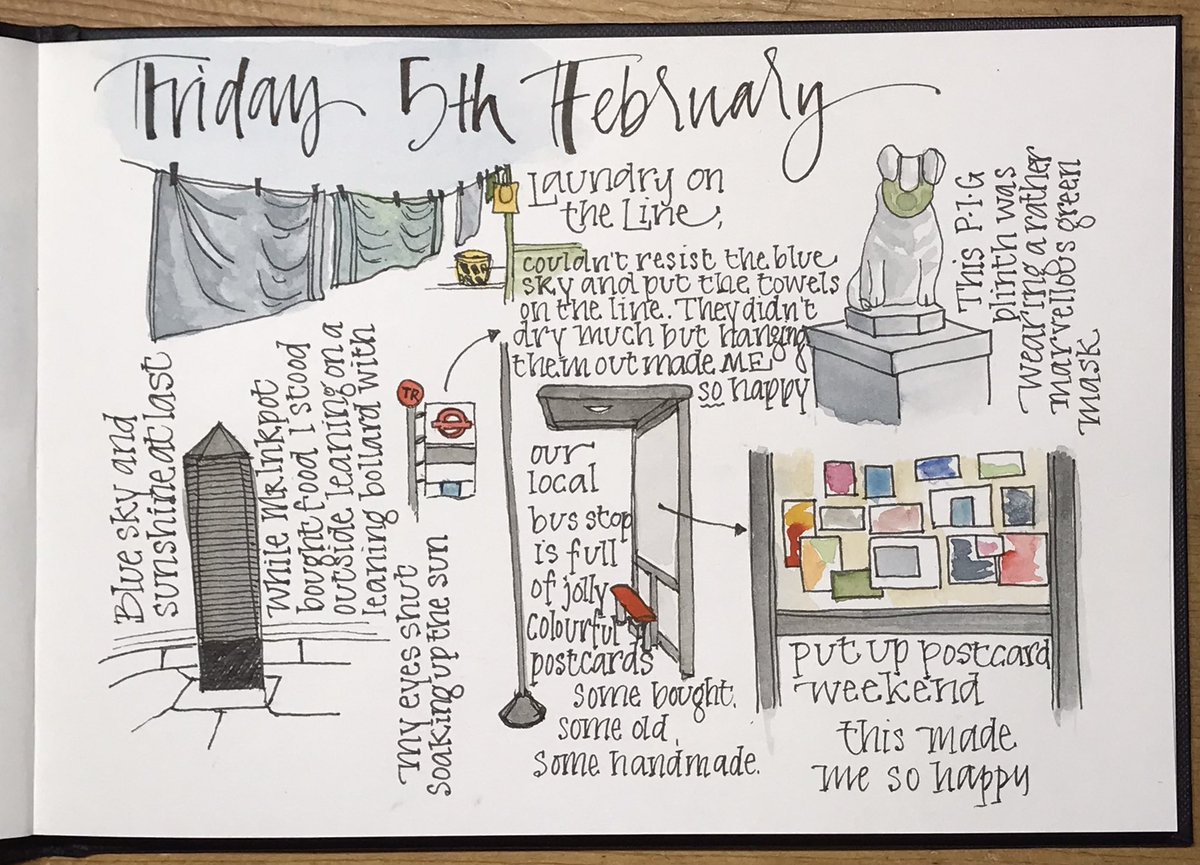 Friday 5th February
Laundry on
the Line,
couldn't resist the blue
sky and put the towels
on the line. They didn't
dry much but hanging
them out made ME
so happy
This P.I.G
plinth was
wearing a rather
marvellous green
mask
Blue sky and
sunshine at last
while Mr Inkpot
bought food I stood
outside leaning on a
leaning bollard with
my eyes shut
soaking up the sun
TR
our
local
bus stop
is full
of jolly
colourful
postcards
some bought,
some old,
some handmade.
put up postcard
weekend
this made
me so happy